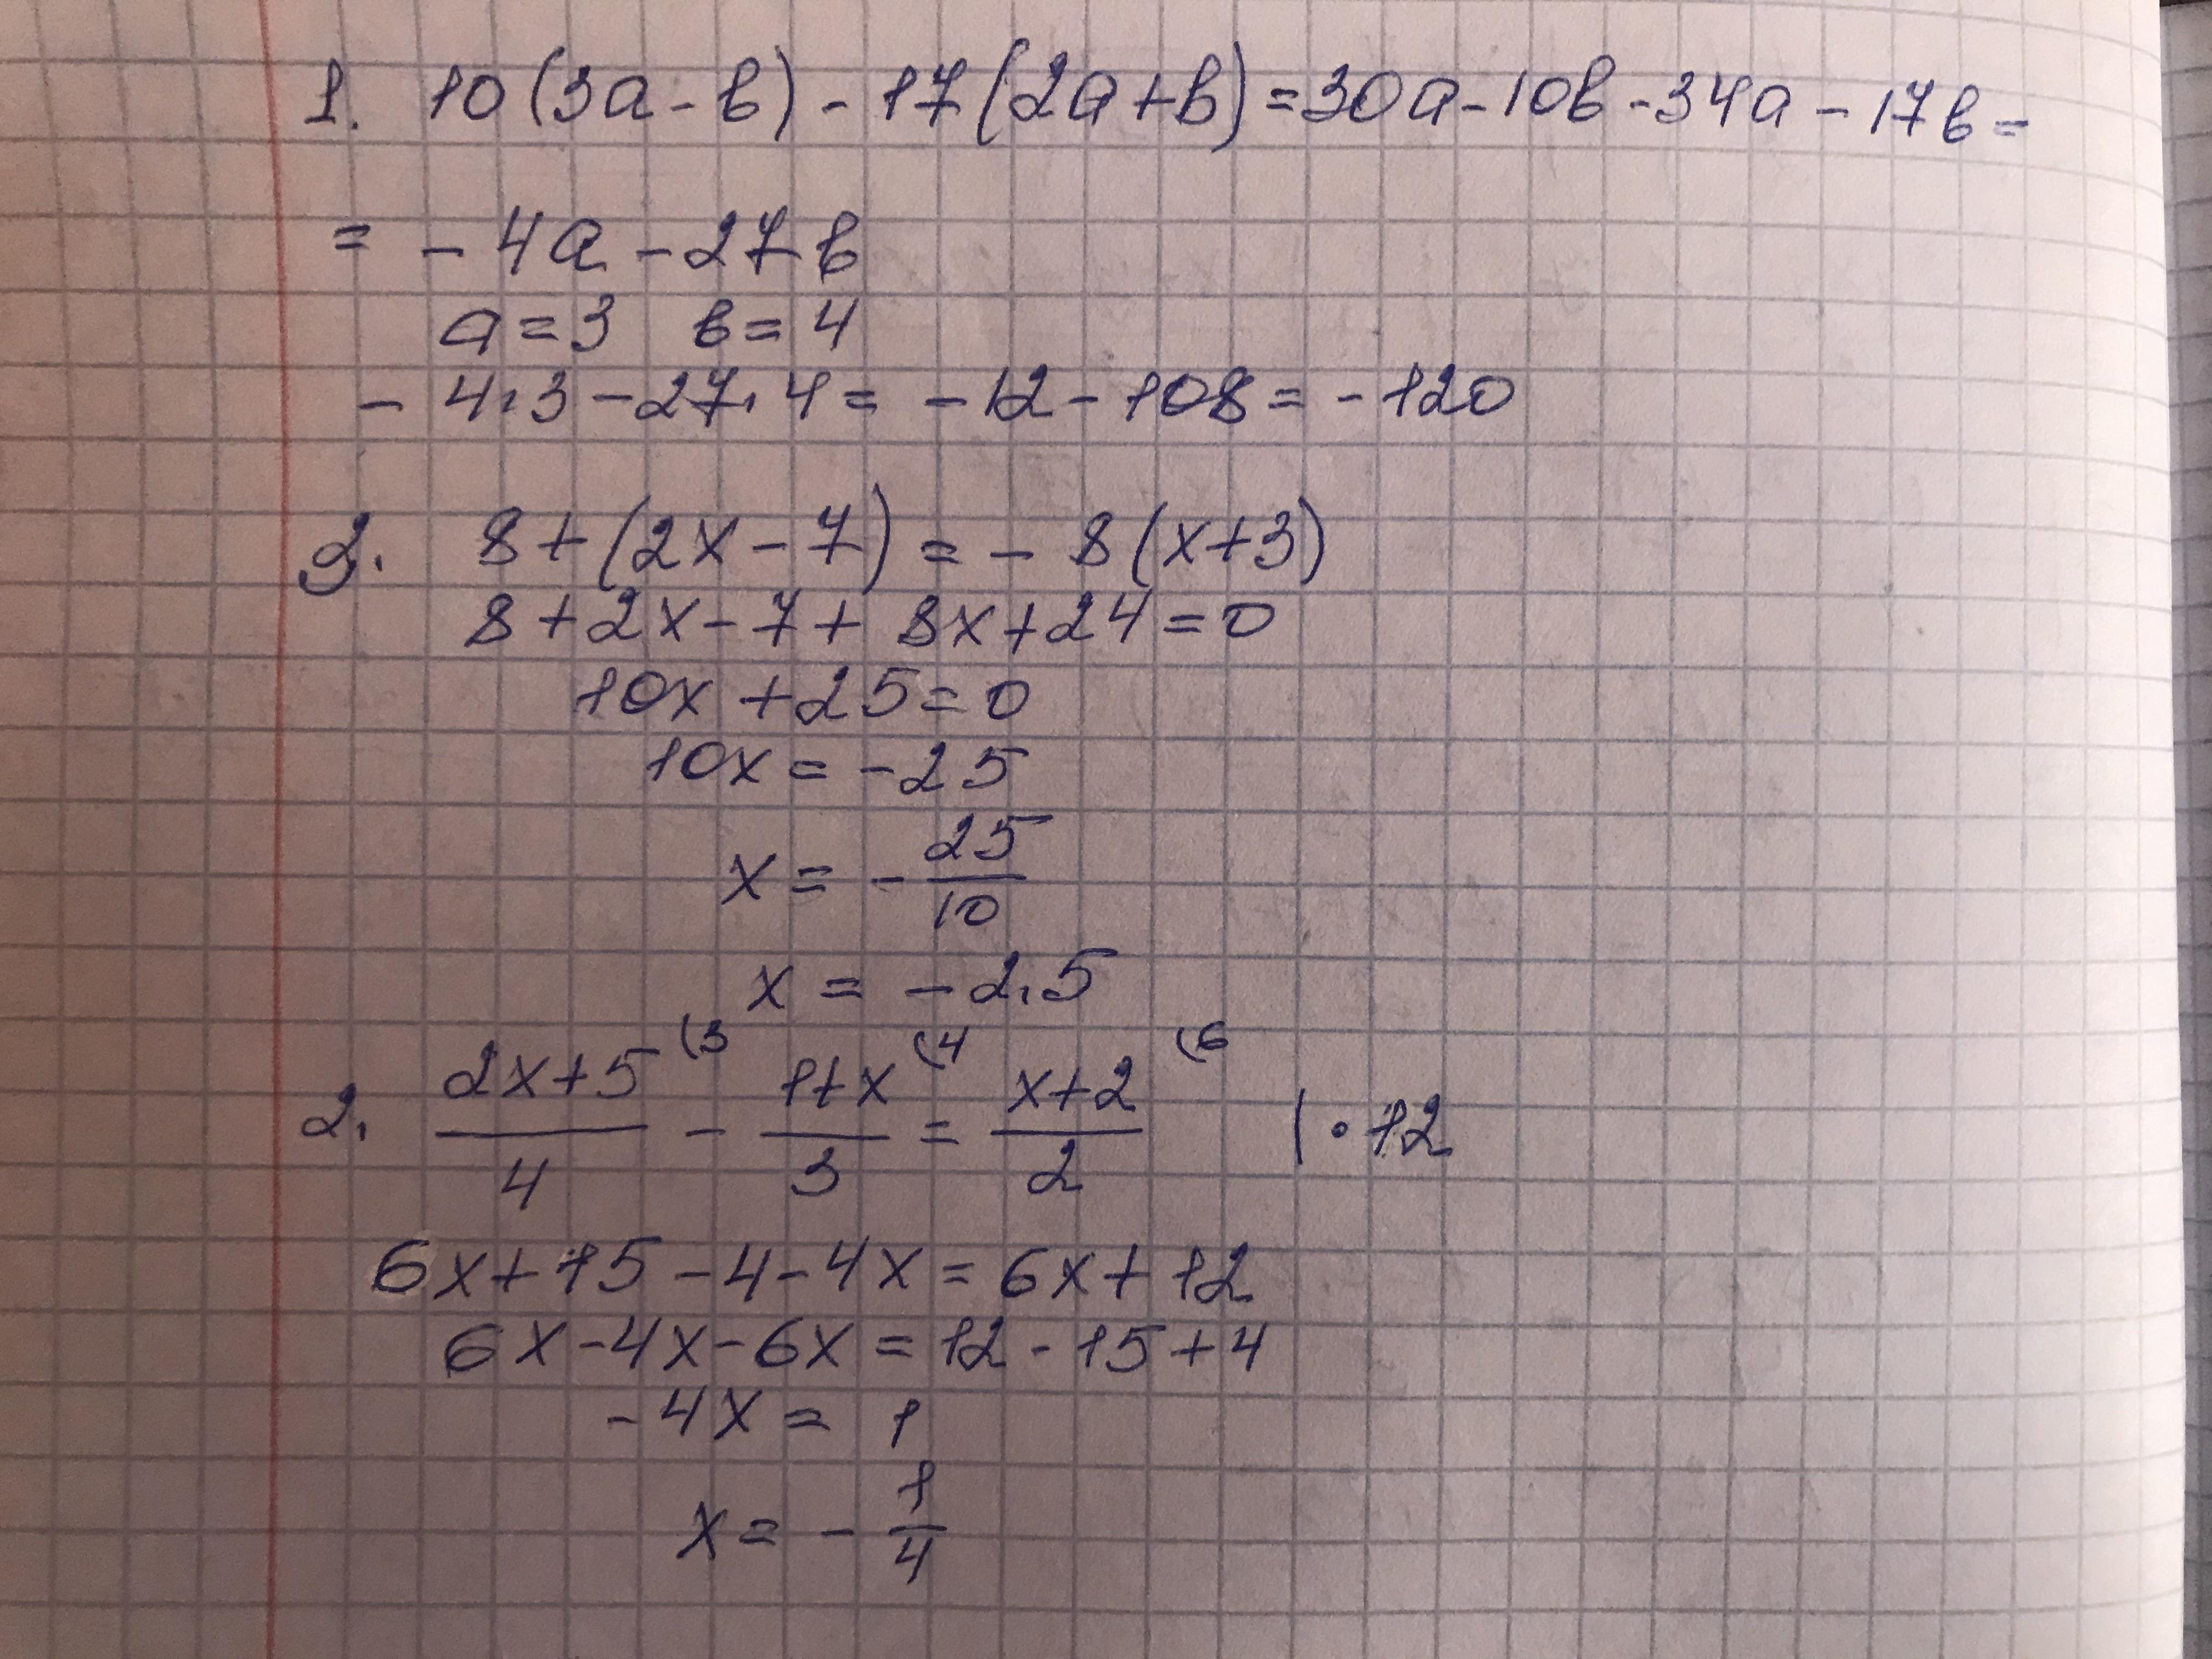 1. 10(3a-b)-17(2a+b)=30a-10b-34a-17b=
= -4a-27b
a=3 b=4
-4·3-27·4= -12-108= -120
2. 8+(2x-7)= -8(x+3)
8+2x-7+8x+24=0
10x+25=0
10x= -25
x= -25/10
x= -2,5
2. (2x+5)/4 (3 - (1+x)/3 (4 = (x+2)/2 (6 | · 12
6x+15-4-4x=6x+12
6x-4x-6x=12-15+4
-4x= 1
x= -1/4